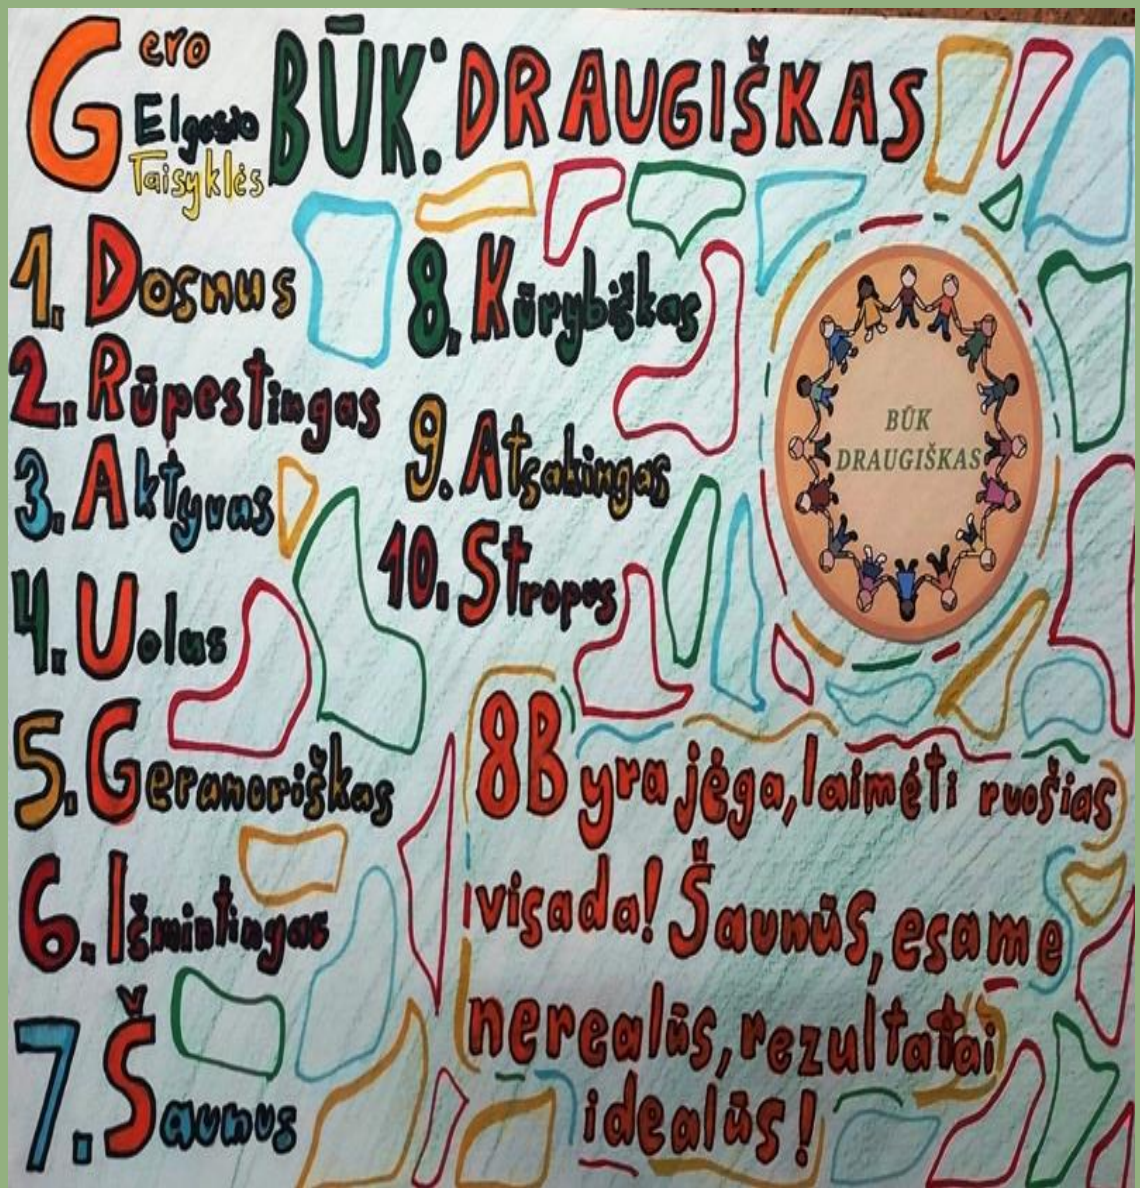 Gero
Elgesio
Taisyklės
BŪK: DRAUGIŠKAS
1. Dosnus
2. Rūpestingas
3. Aktyvus
4. Uolus
5. Geranoriškas
6. Išmintingas
7. Šaunus
8. Kūrybiškas
9. Atsakingas
10. Stropus
BŪK
DRAUGIŠKAS
8B yra jėga, laimėti ruošias
visada! Šaunūs, esame
nerealūs, rezultatai
idealūs!